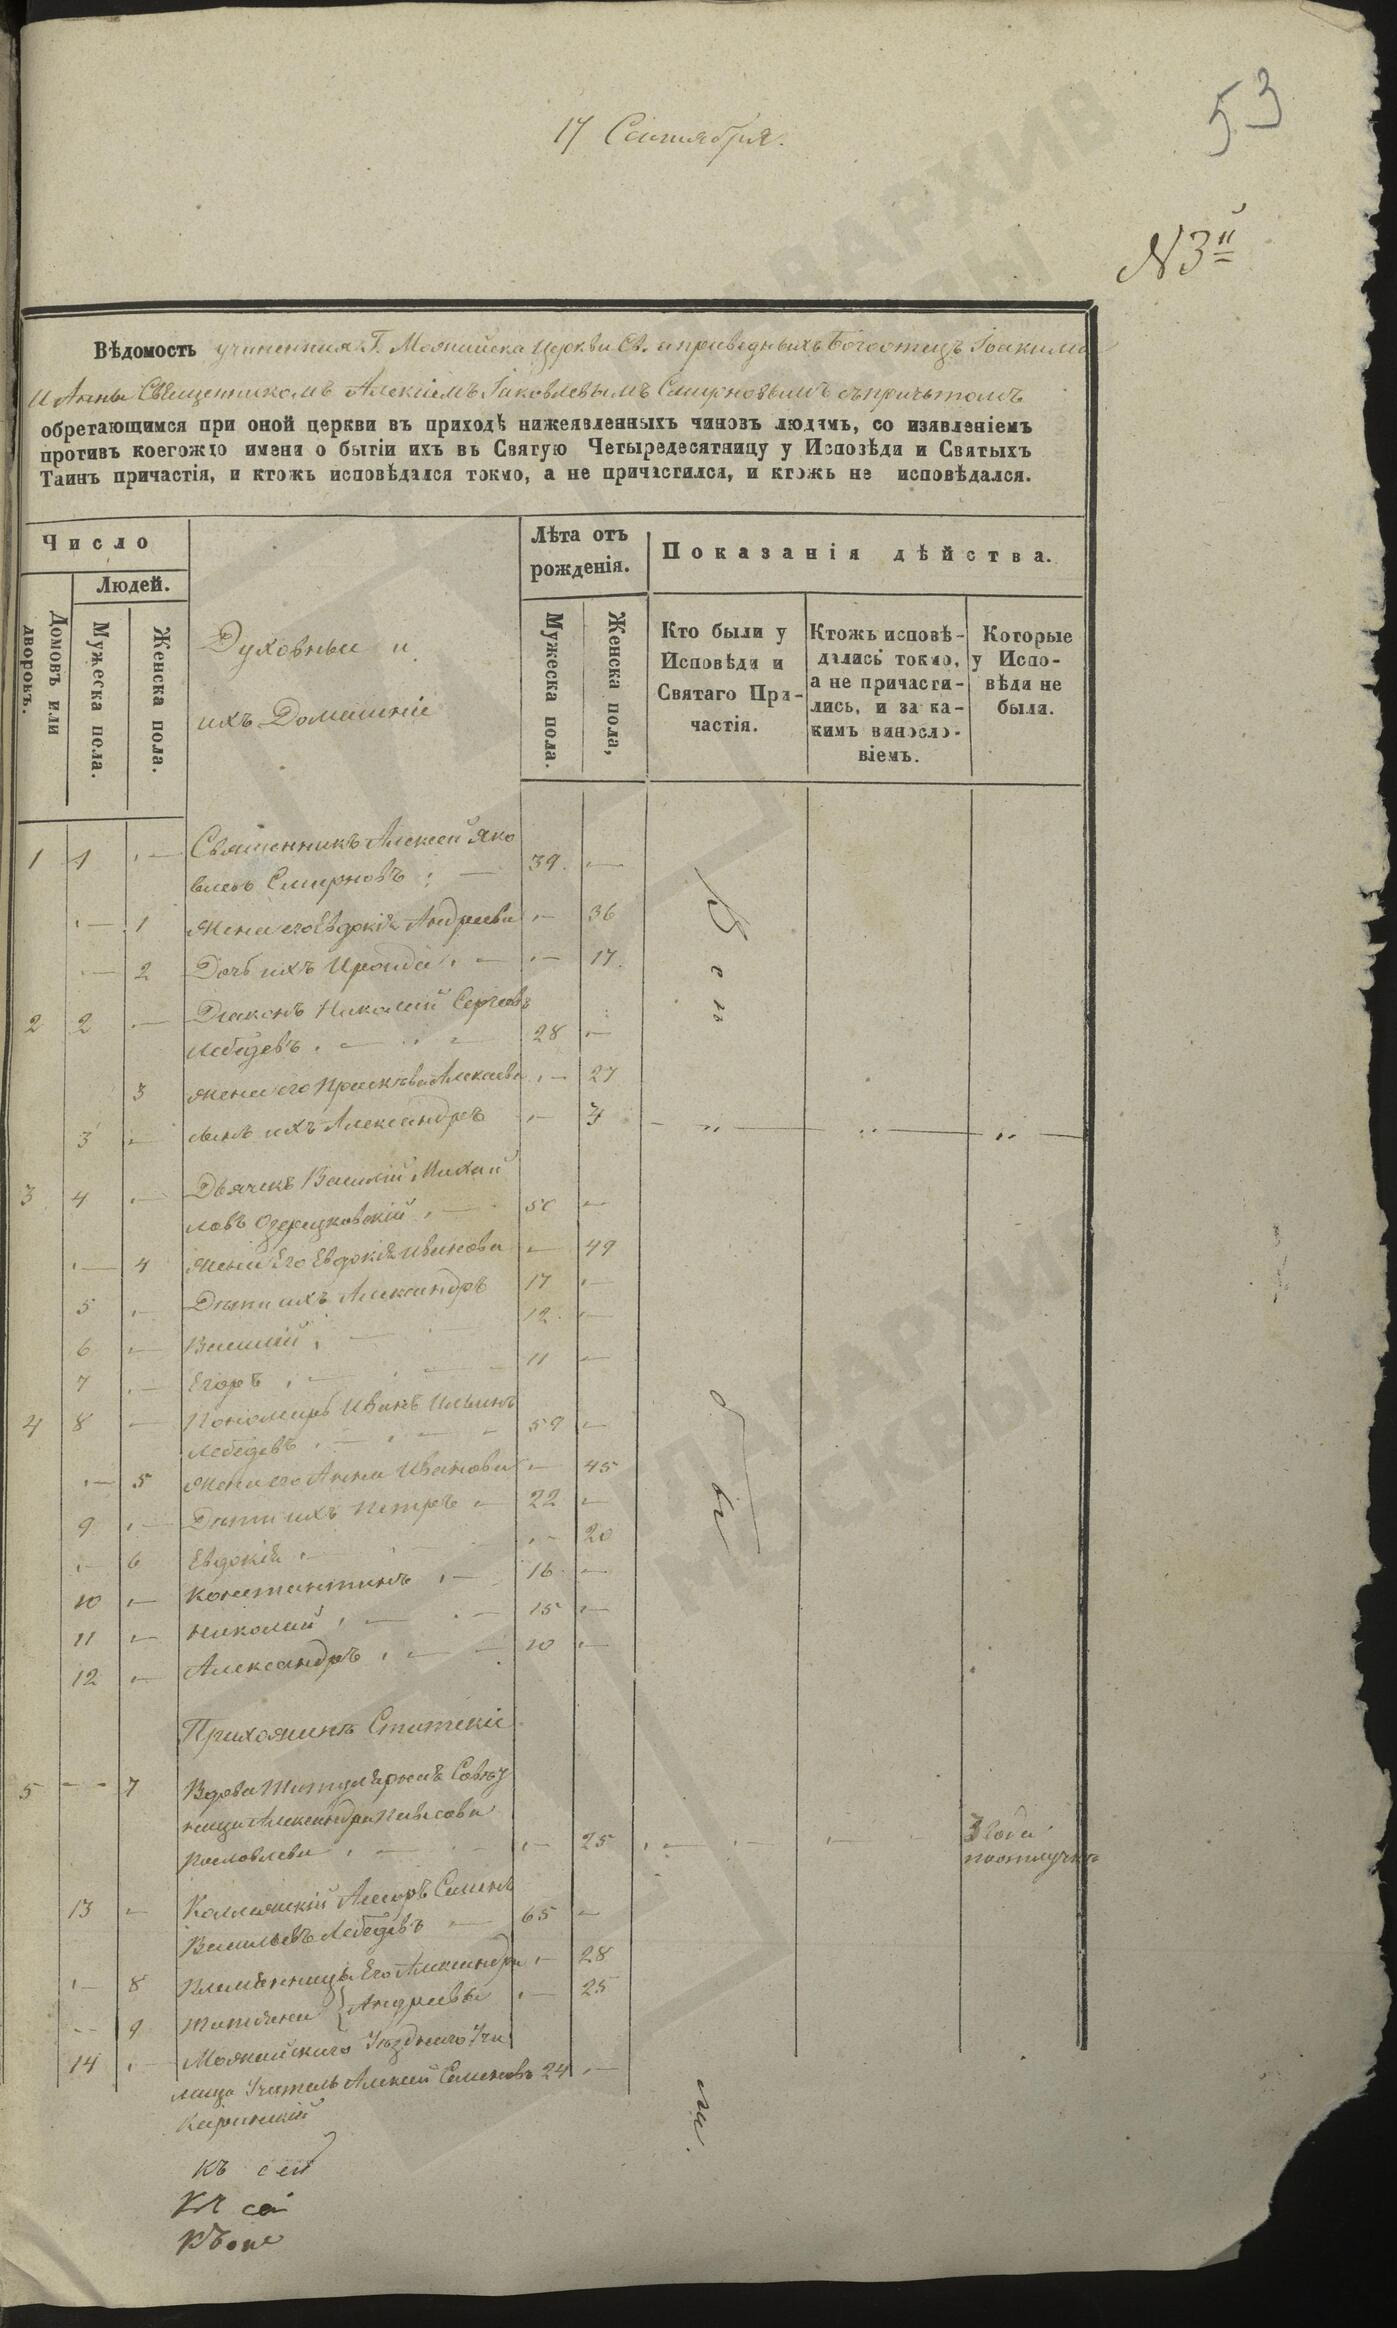 53
17 Сентября.
N 3й
Вѣдомость учиненная Г. Можайска церкви Св. и праведныхъ Богоотецъ Іоакима
и Анны Священникомъ Алексіемъ Іаковлевымъ Смирновымъ съ причтомъ
обретающимся при оной церкви въ приходѣ нижеявленныхъ чиновъ людямъ, со изявленіемъ
противъ коегождо имени о бытіи ихъ въ Святую Четыредесятницу у Исповѣди и Святыхъ
Таинъ причастія, и ктожъ исповѣдался токмо, а не причастился, и ктожъ не исповѣдался.
Число
Людей.
Домовъ или
дворокъ.
Мужеска пола.
Женска пола.
Духовныи и
ихъ Домашніе
Лѣта отъ
рожденія.
Мужеска пола.
Женска пола,
Показанія дѣйства.
Кто были у
Исповѣди и
Святаго При-
частія.
Ктожъ исповѣ-
дались токмо,
а не причасти-
лись, и за ка-
кимъ винослo-
віемъ.
Которые
у Испо-
вѣди не
были.
1 1 — Священникъ Алексей Яко
влевъ Смирновъ — 39. —
— 1 Жена его Евдокія Андреева — 36
— 2 Дочь ихъ Ираида — — 17.
2 2 — Діаконъ Николай Сергеевъ
Лебедевъ — 28 —
3 Жена его Прасковья Алексеева — 27
3 — сынъ ихъ Александръ — 3 — „ — „ — „ —
3 4 — Дьячекъ Василій Михай
ловъ Озерецковскій — 50 —
— 4 Жена Его Евдокія Иванова — 49
5 — Дети ихъ Александръ 17 —
6 — Василій — 12. —
7 — Егоръ — 11 —
4 8 — Пономарь Иванъ Ильинъ
Лебедевъ — 59 —
— 5 Жена его Анна Иванова — 45
9 — Дети ихъ Петръ — 22 —
— 6 Евдокія — — 20
10 — Константинъ — 16 —
11 — Николай — 15 —
12 — Александръ — 10 —
Прихожанъ Статскіе
5 — 7 Вдова Титулярная Совѣт
ница Александра
— 25 — — — 3 года
по отлучке
13 — Коллежскій Асесоръ Семенъ
Васильевъ Лебедевъ — 65 —
— 8 Племянницы Его Александра — 28
— 9 Татіяна } Андреевы — 25
14 — Можайскаго Уезднаго Учи
лища Учитель Алексей Семеновъ 24 —
Каринскій
Вси
бы
ли.
къ сей
къ сей
къ
ГЛАВАРХИВ
МОСКВЫ
ГЛАВАРХИВ
МОСКВЫ